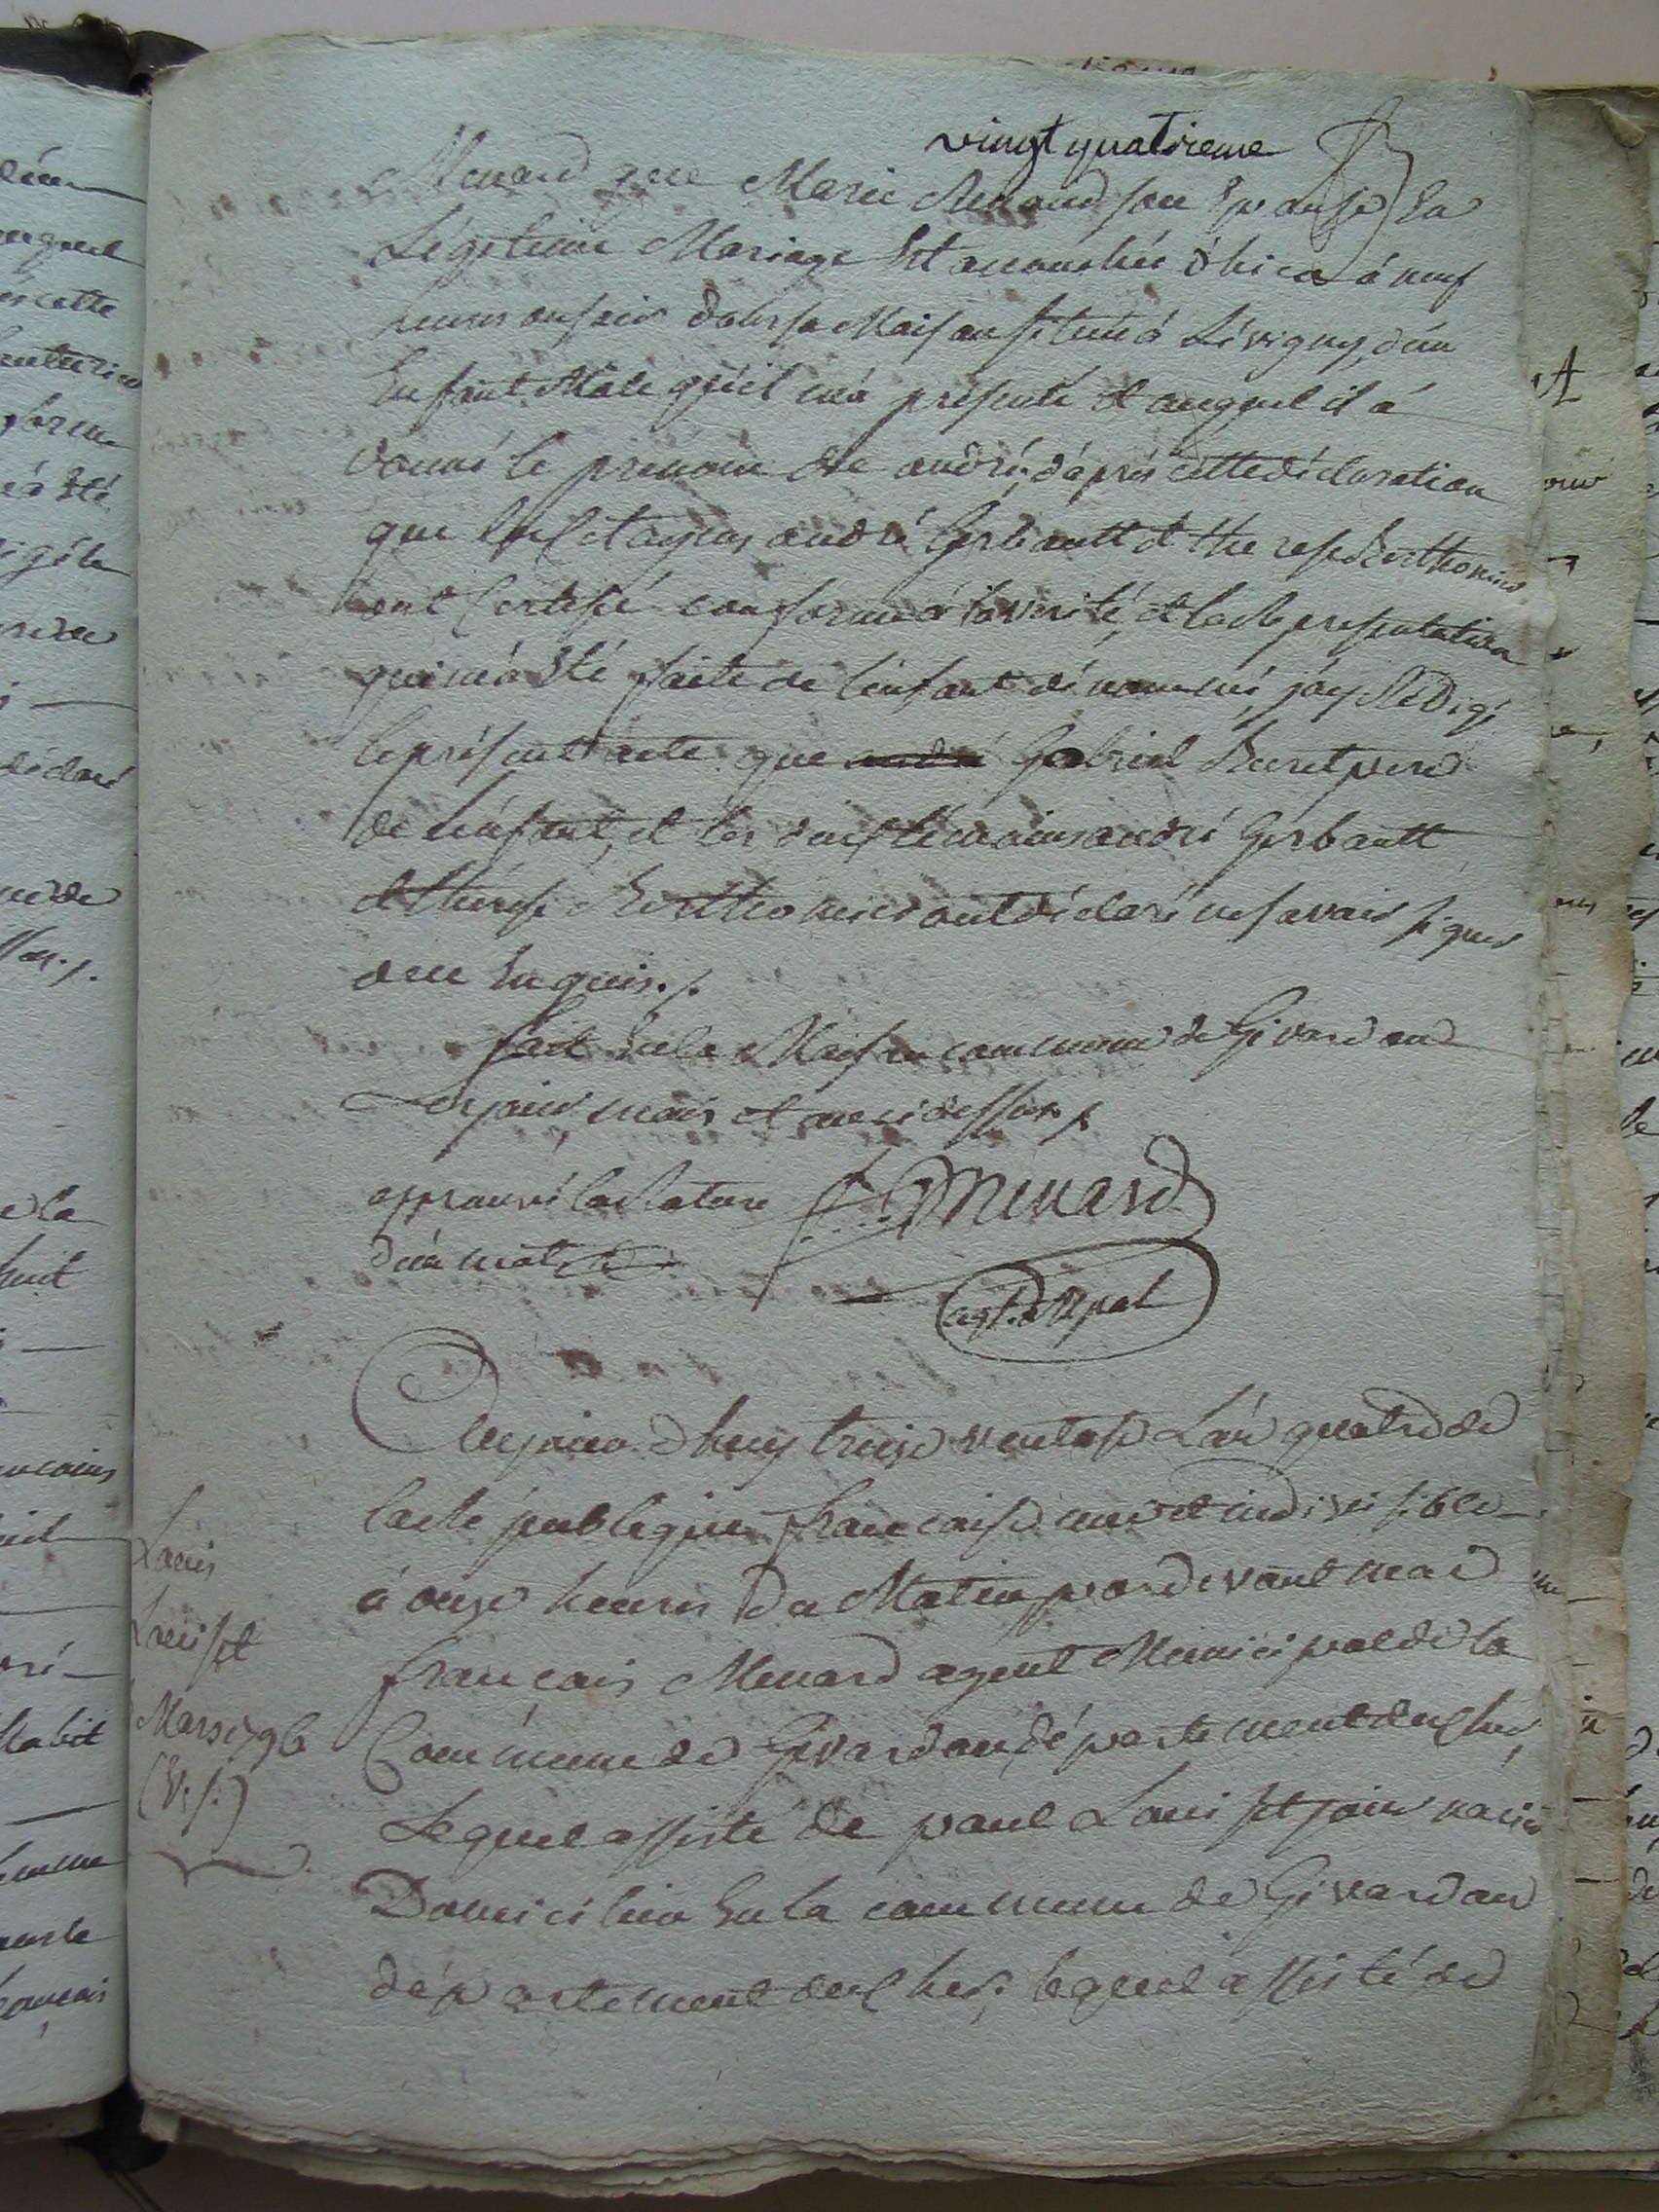 vingt quatrieme
Menard que Marie Renaud son Epouse En
Légitime Mariage Est accouchée d'hier à neuf
heures du soir dans sa Maison scitué à Lévigny, d'un
Enfant Mâle qu'il m'a présenté et auquel il à
donné le prénom de andré, d'après cette déclaration
que les Citoyens andré Gerbault et Therese Berthomier
ont Certifié conforme à la vérité, et la Représentation
qui m'à Eté faite de l'enfant dénommé, j'ay Rédigé
le présent acte que andré Gabriel Buret pere
de l'enfant, et les deux témoins andré Gerbault
et thérese Berthomier ont déclaré ne savoir signer
de ce Enquis ./.
fait En la Maison commune de Givardon
les jour, mois et an ci dessus ./.
approuvé la Rature
d'un mot
f: Menard
agt. Mpal
Aujourd'huy treise ventose L'an quatre de
la République francaise une et indivisible
à onze heures du Matin pardevant moi
francois Menard agent Municipal de la
Commune de Givardon, département du Cher,
Lequel assisté de paul Louiset journalier
Domicilier En la commune de Givardon
département du Cher; lequel assisté de
Louis
Louiset
Mars 1796
(V. s.)